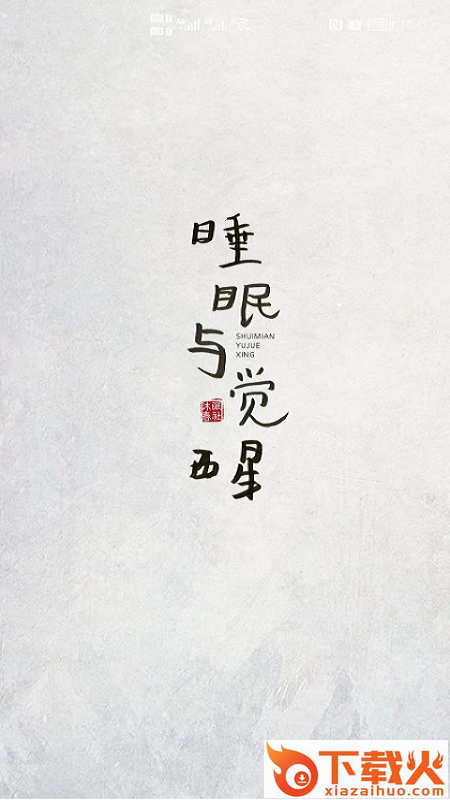 睡
眠
与
SHUIMIAN
YUJUE
XING
觉
醒
下载火
xiazaihuo.com